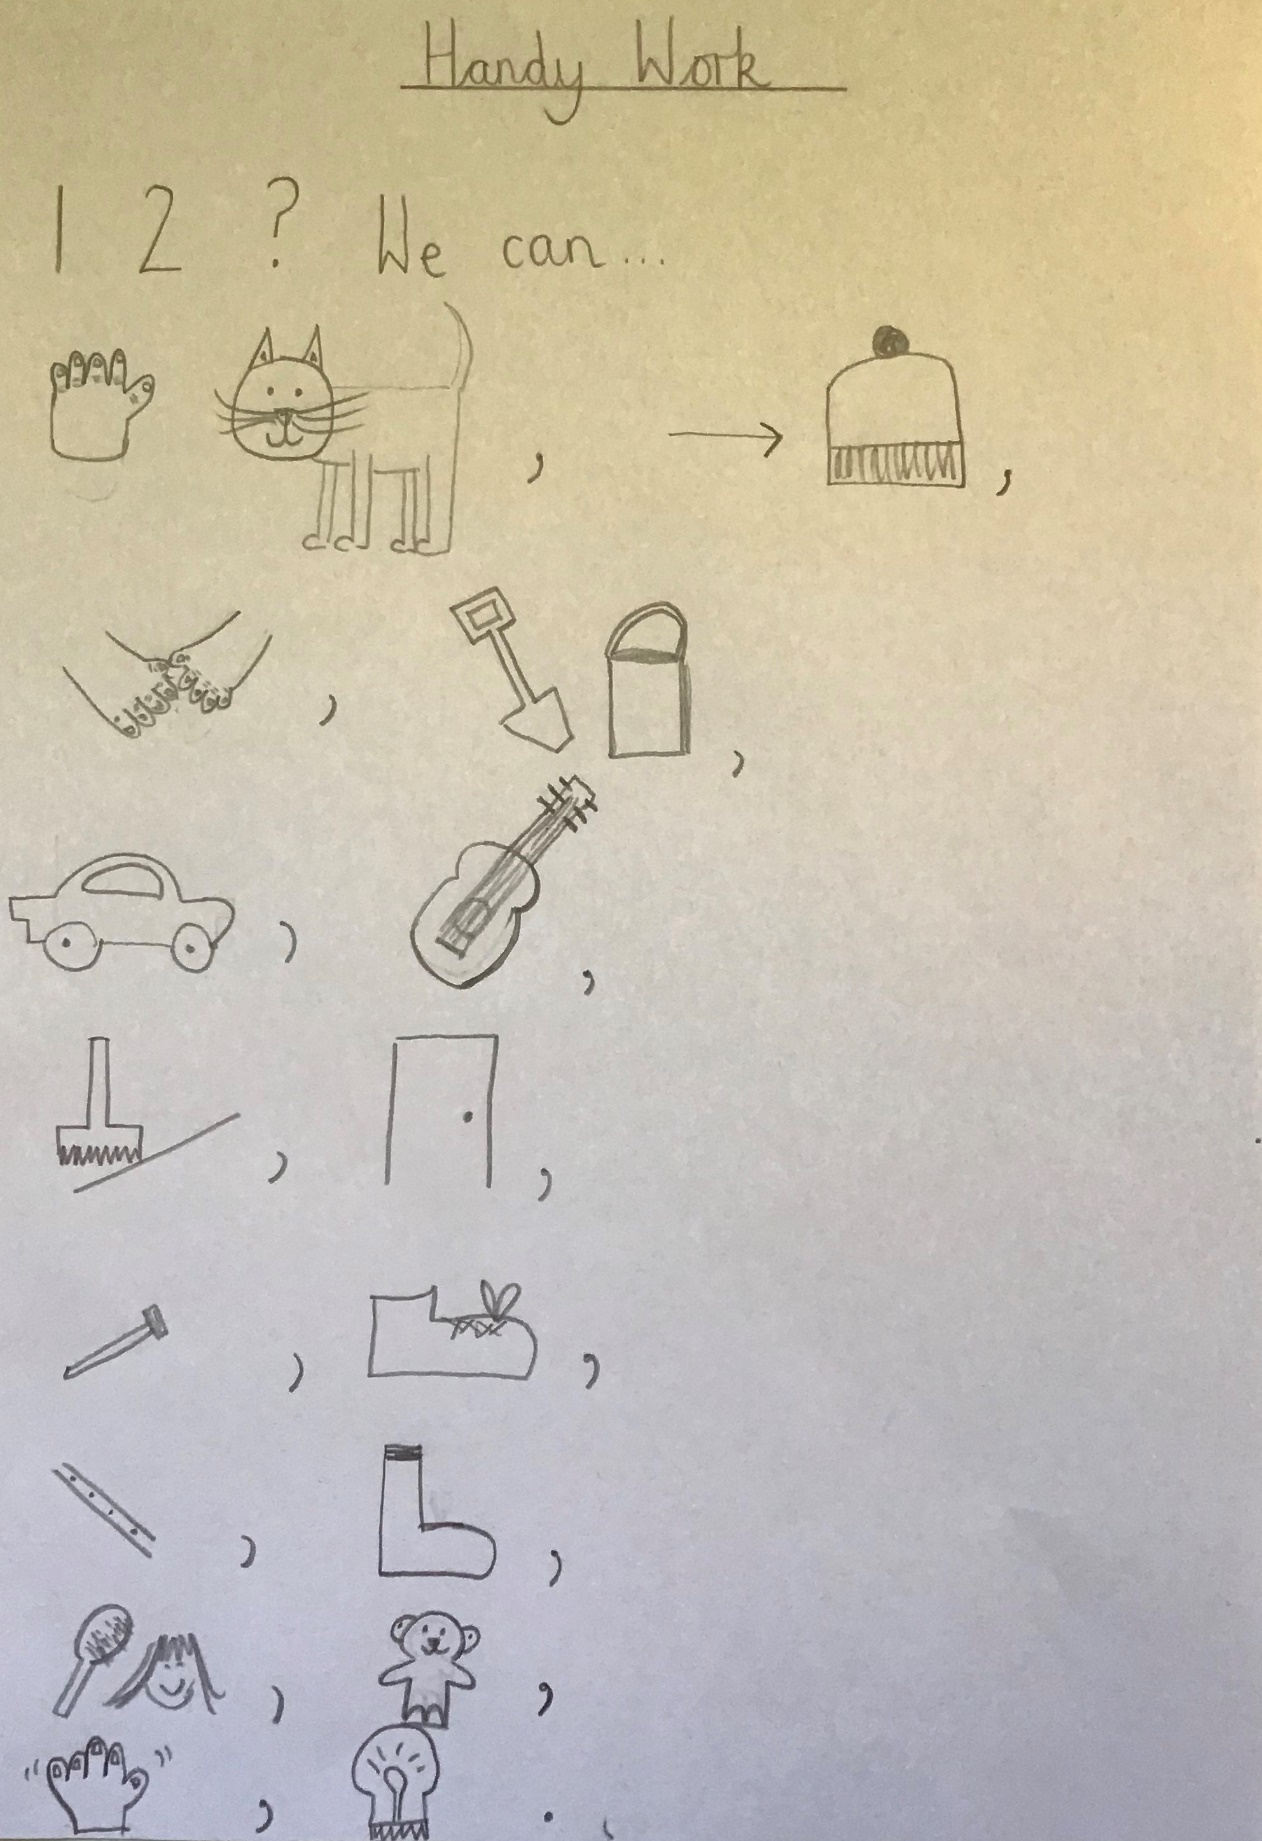 Handy Work
1 2 ? We can...